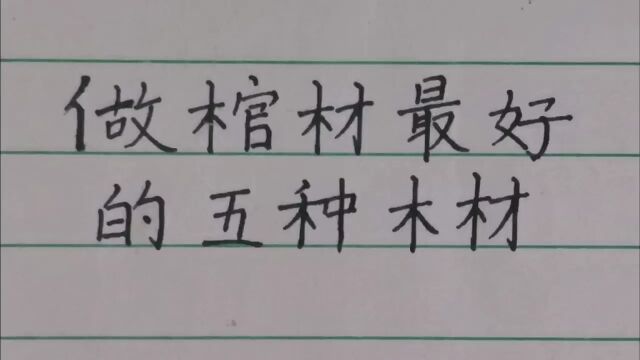 做棺材最好
的五种木材